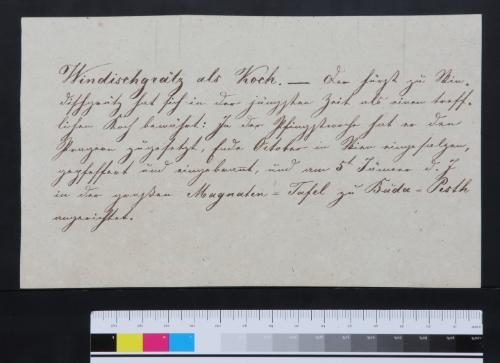 Windischgrätz als Koch. — Der Fürst zu Win-
dischgrätz hat sich in der jüngsten Zeit als einen treff-
lichen Koch bewährt: In der Pfingstwoche hat er den
Pragern zugesetzt, Ende October in Wien eingesalzen,
gepfeffert und eingebrannt, und am 5t Jänner d. J
in der großen Magnaten-Tafel zu Buda-Pesth
angerichtet.